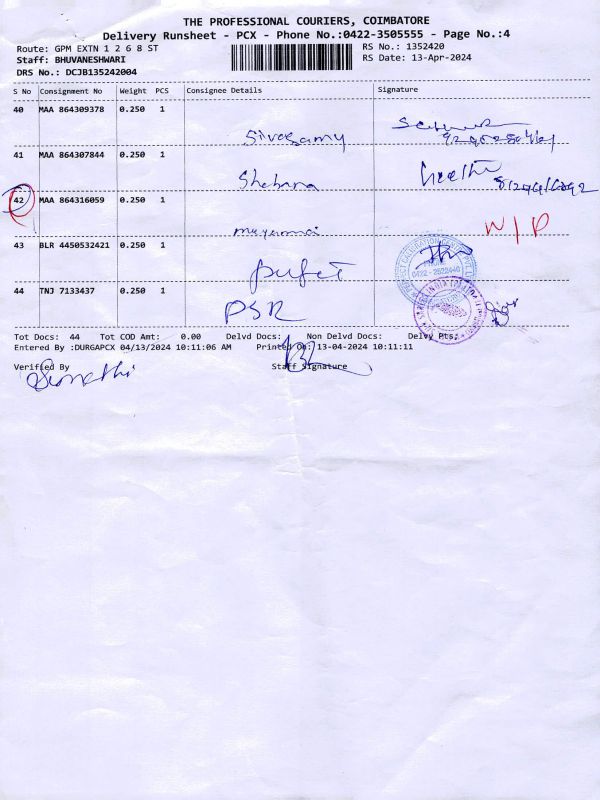 THE PROFESSIONAL COURIERS, COIMBATORE
Delivery Runsheet - PCX - Phone No.:0422-3505555 - Page No.:4
Route: GPM EXTN 1 2 6 8 ST
RS No.: 1352420
Staff: BHUVANESHWARI
RS Date: 13-Apr-2024
DRS No.: DCJB135242004
S No Consignment No Weight PCS Consignee Details Signature
40 MAA 864309378 0.250 1
Sivasamy
41 MAA 864307844 0.250 1
Shabana
42 MAA 864316059 0.250 1
W/D
43 BLR 4450532421 0.250 1
0422-2522440
44 TNJ 7133437 0.250 1
PSR
Tot Docs: 44 Tot COD Amt: 0.00 Delvd Docs: Non Delvd Docs: Delvy Pts:
Entered By :DURGAPCX 04/13/2024 10:11:06 AM Printed On: 13-04-2024 10:11:11
Verified By Staff Signature